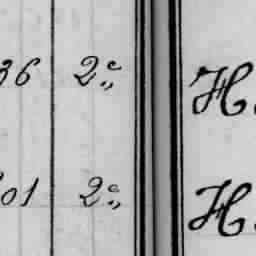 36 2.e„ H.
01 2.e„ H.